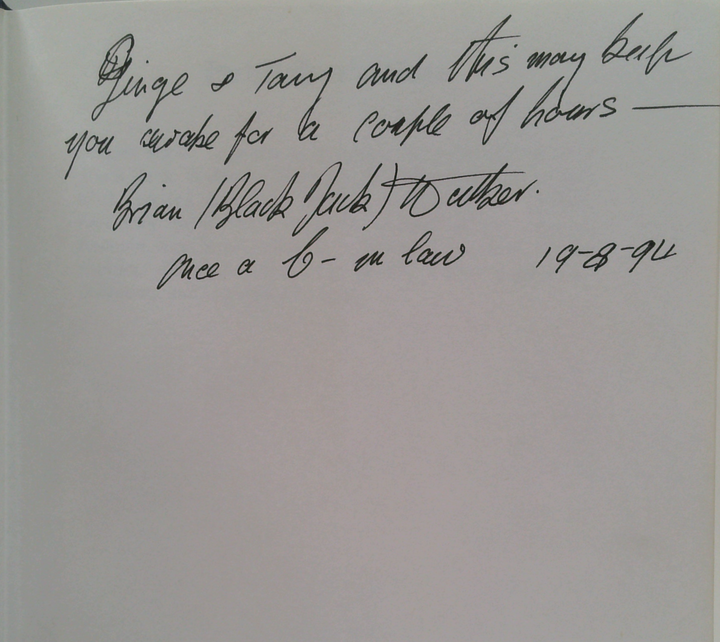 Ginge & Tany and this may keep
you awake for a couple of hours —
Brian (Black Jack) Walker.
once a b- in law 19-8-94